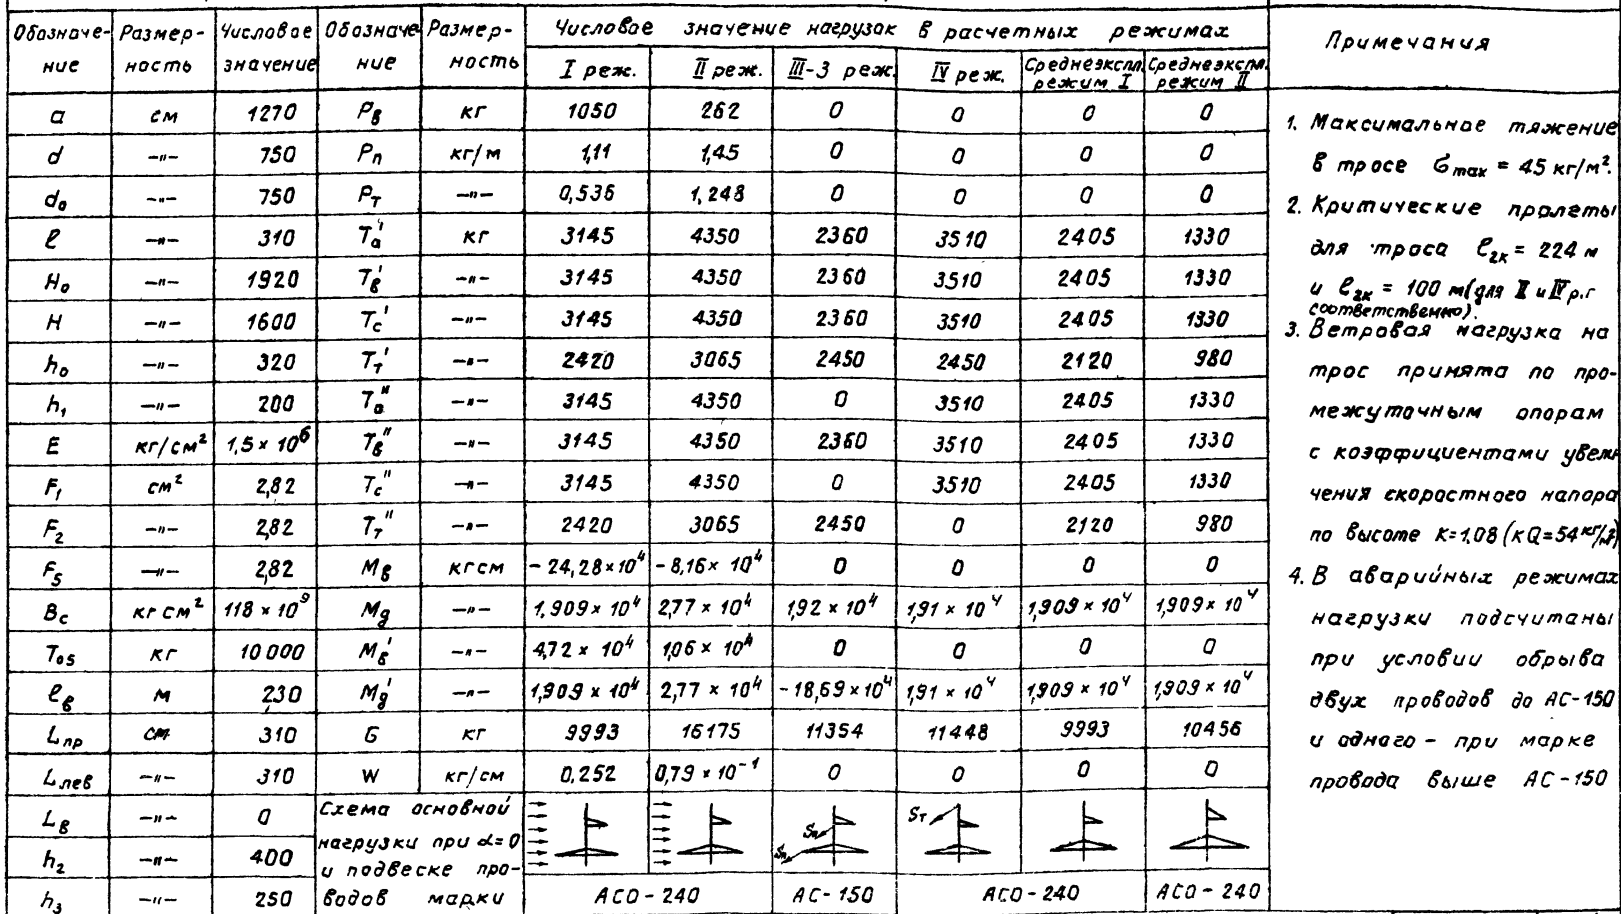 Обозначе- Размер- Числовое Обозначе Размер- Числовое значение нагрузок в расчетных режимах Примечания
ние ность значение ние ность I реж. II реж. III-3 реж. IV реж. Среднеэкспл. режим I Среднеэкспл. режим II
a см 1270 Pв кг 1050 262 0 0 0 0
d —"— 750 Pп кг/м 1,11 1,45 0 0 0 0
d₀ —"— 750 Pт —"— 0,536 1,248 0 0 0 0
ℓ —"— 310 Tа' кг 3145 4350 2360 3510 2405 1330
H₀ —"— 1920 Tв' —"— 3145 4350 2360 3510 2405 1330
H —"— 1600 Tс' —"— 3145 4350 2360 3510 2405 1330
h₀ —"— 320 Tт' —"— 2420 3065 2450 2450 2120 980
h₁ —"— 200 Tа" —"— 3145 4350 0 3510 2405 1330
E кг/см² 1,5 × 10⁶ Tв" —"— 3145 4350 2360 3510 2405 1330
F₁ см² 2,82 Tс" —"— 3145 4350 0 3510 2405 1330
F₂ —"— 2,82 Tт" —"— 2420 3065 2450 0 2120 980
F₅ —"— 2,82 Mв кгсм - 24,28×10⁴ - 8,16 × 10⁴ 0 0 0 0
Bс кг см² 118 × 10⁹ Mg —"— 1,909 × 10⁴ 2,77 × 10⁴ 1,92 × 10⁴ 1,91 × 10⁴ 1,909 × 10⁴ 1,909 × 10⁴
T₀₅ кг 10 000 Mв' —"— 4,72 × 10⁴ 1,06 × 10⁴ 0 0 0 0
ℓв м 230 Mg' —"— 1,909 × 10⁴ 2,77 × 10⁴ - 18,69 × 10⁴ 1,91 × 10⁴ 1,909 × 10⁴ 1,909 × 10⁴
Lпр см 310 G кг 9993 16175 11354 11448 9993 10456
Lлев —"— 310 W кг/см 0,252 0,79 × 10⁻¹ 0 0 0 0
Lв —"— 0
h₂ —"— 400
h₃ —"— 250
Схема основной
нагрузки при α=0
и подвеске про-
водов марки
Sп Sп Sт
АСО - 240 АС - 150 АСО - 240 АСО - 240
1. Максимальное тяжение
в тросе Gmax = 45 кг/м².
2. Критические пролеты
для троса ℓ2к = 224 м
и ℓ2к = 100 м (для II и IV р.г
соответственно).
3. Ветровая нагрузка на
трос принята по про-
межуточным опорам
с коэффициентами увели
чения скоростного напора
по высоте K=1,08 (кQ=54 кг/м²)
4. В аварийных режимах
нагрузки подсчитаны
при условии обрыва
двух проводов до АС-150
и одного - при марке
провода выше АС - 150